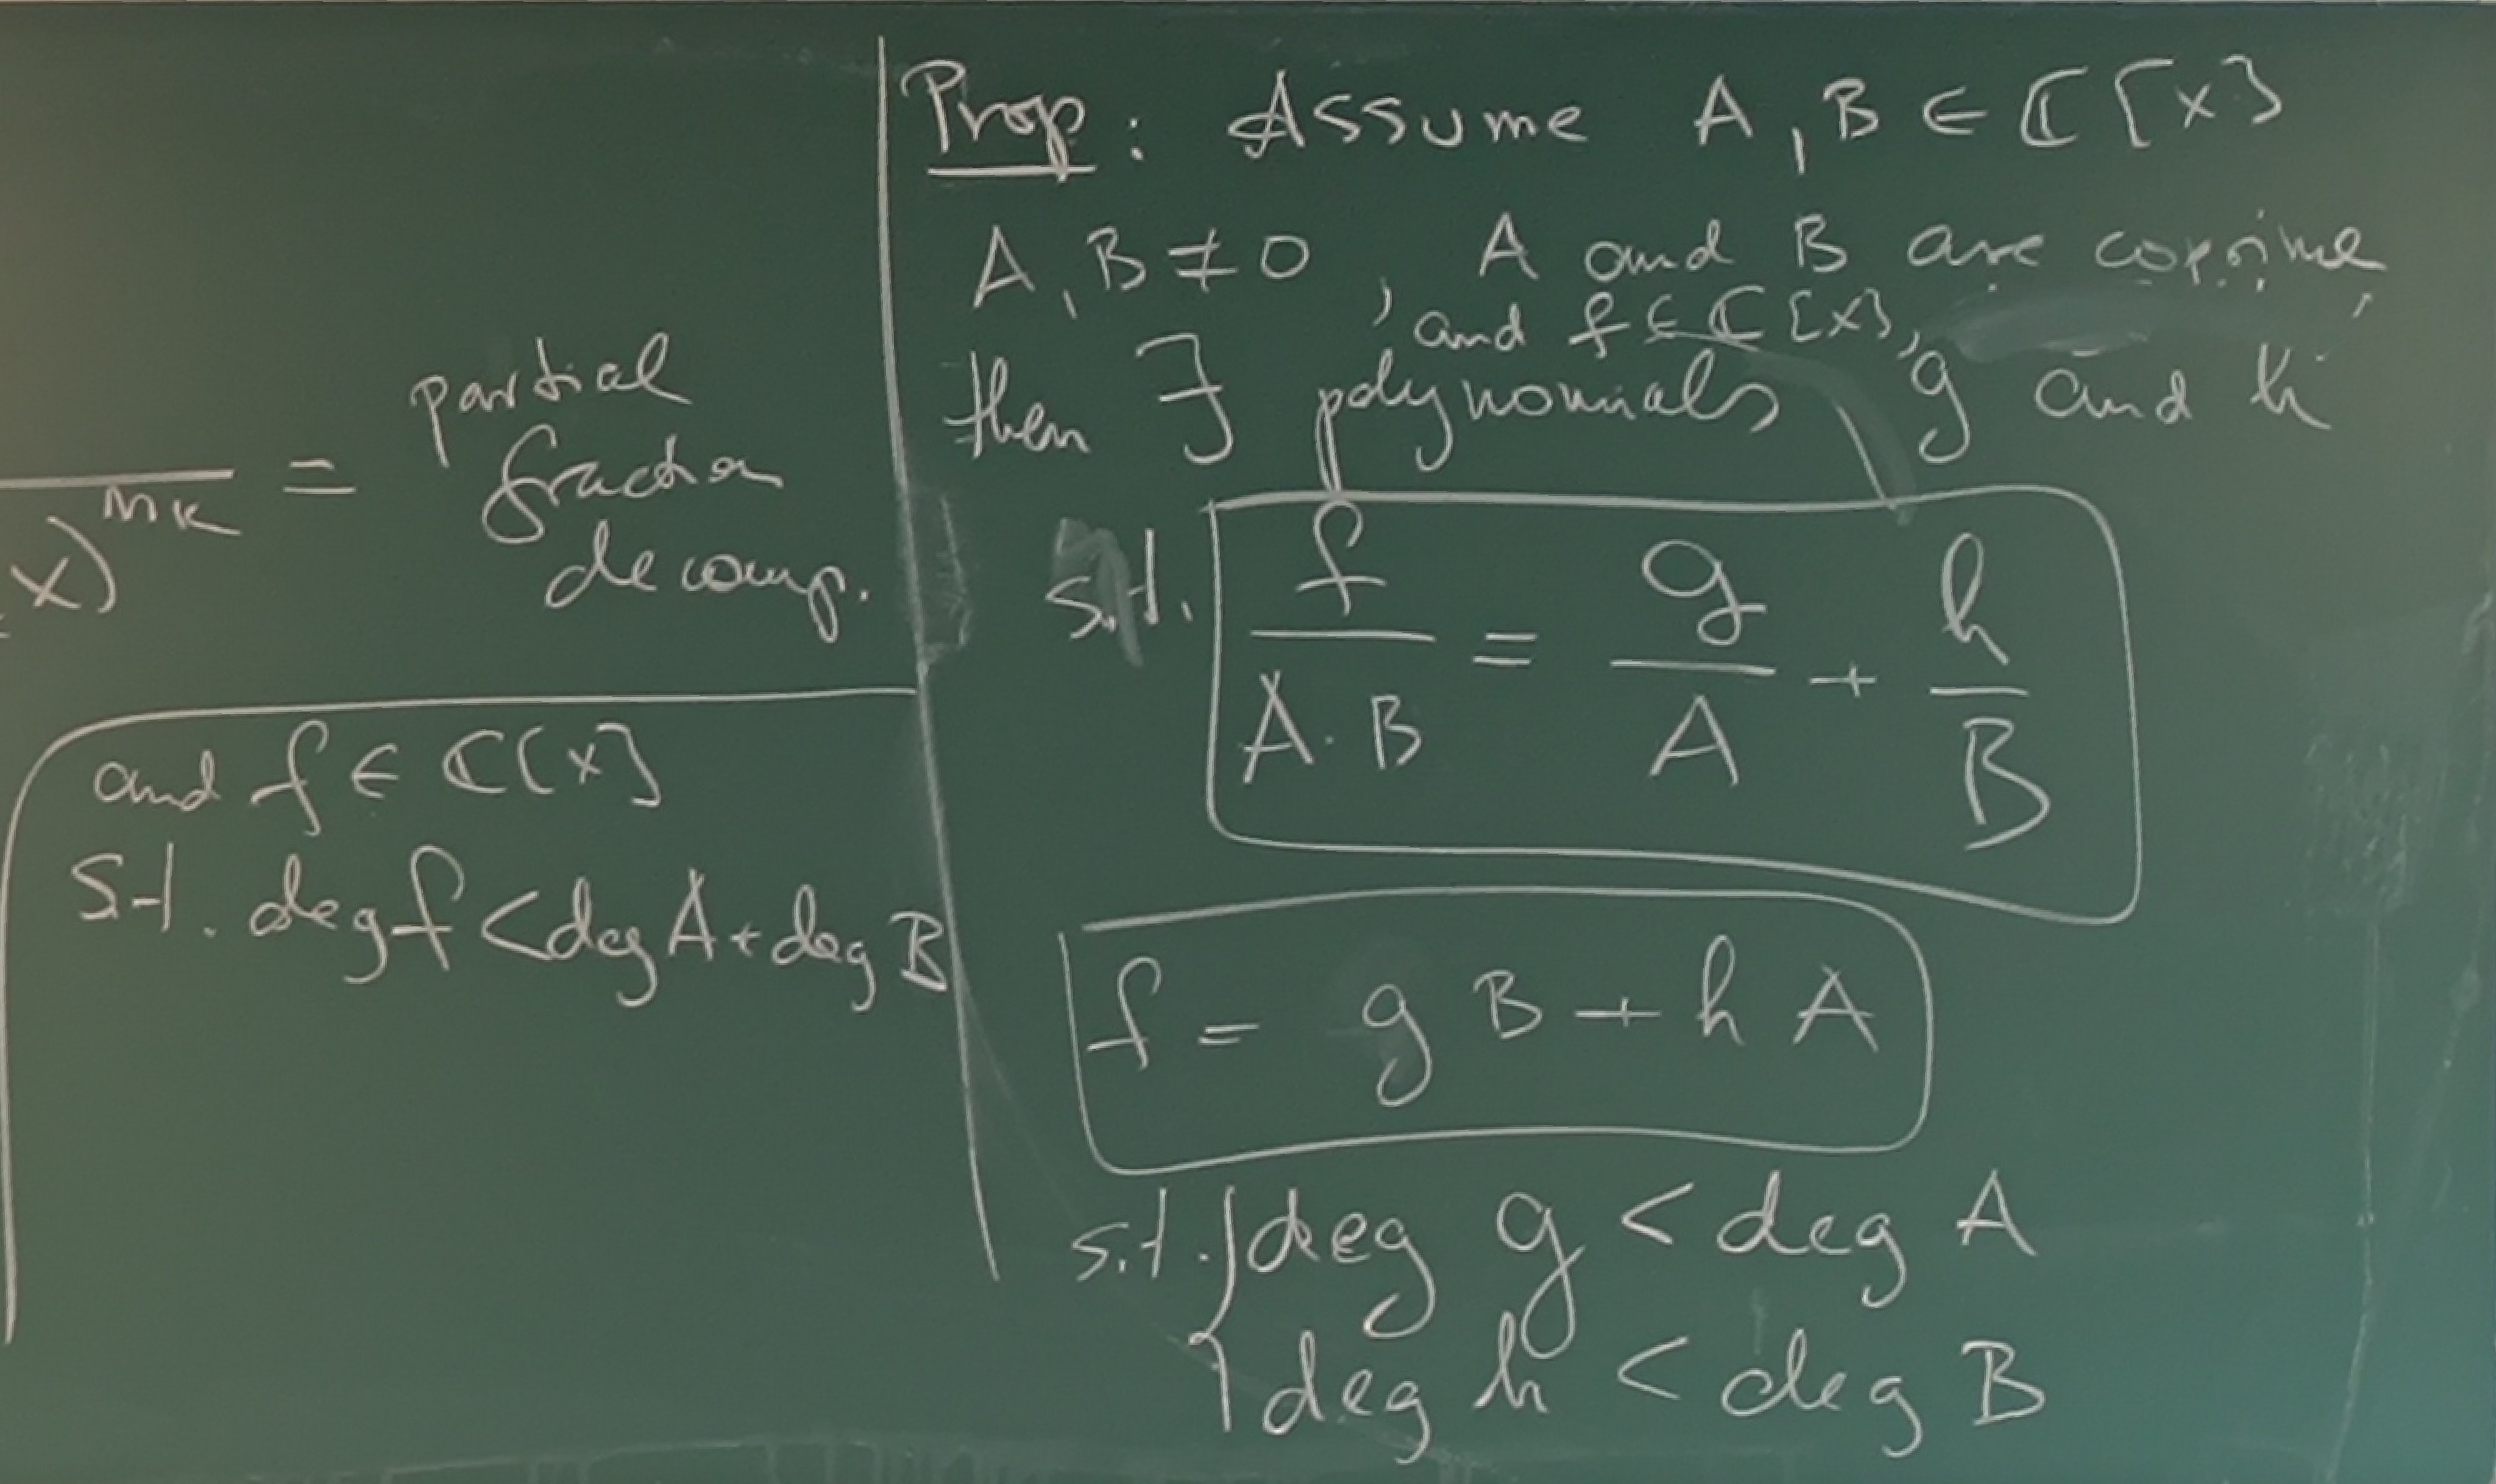 partial
= fraction
x)^{m_k} decomp.
and f ∈ ℂ[x]
s.t. deg f < deg A + deg B
Prop: Assume A, B ∈ ℂ[x]
A, B ≠ 0, A and B are coprime,
and f ∈ ℂ[x],
then ∃ polynomials g and h
s.t. f/(A·B) = g/A + h/B
f = g B + h A
s.t. { deg g < deg A
deg h < deg B